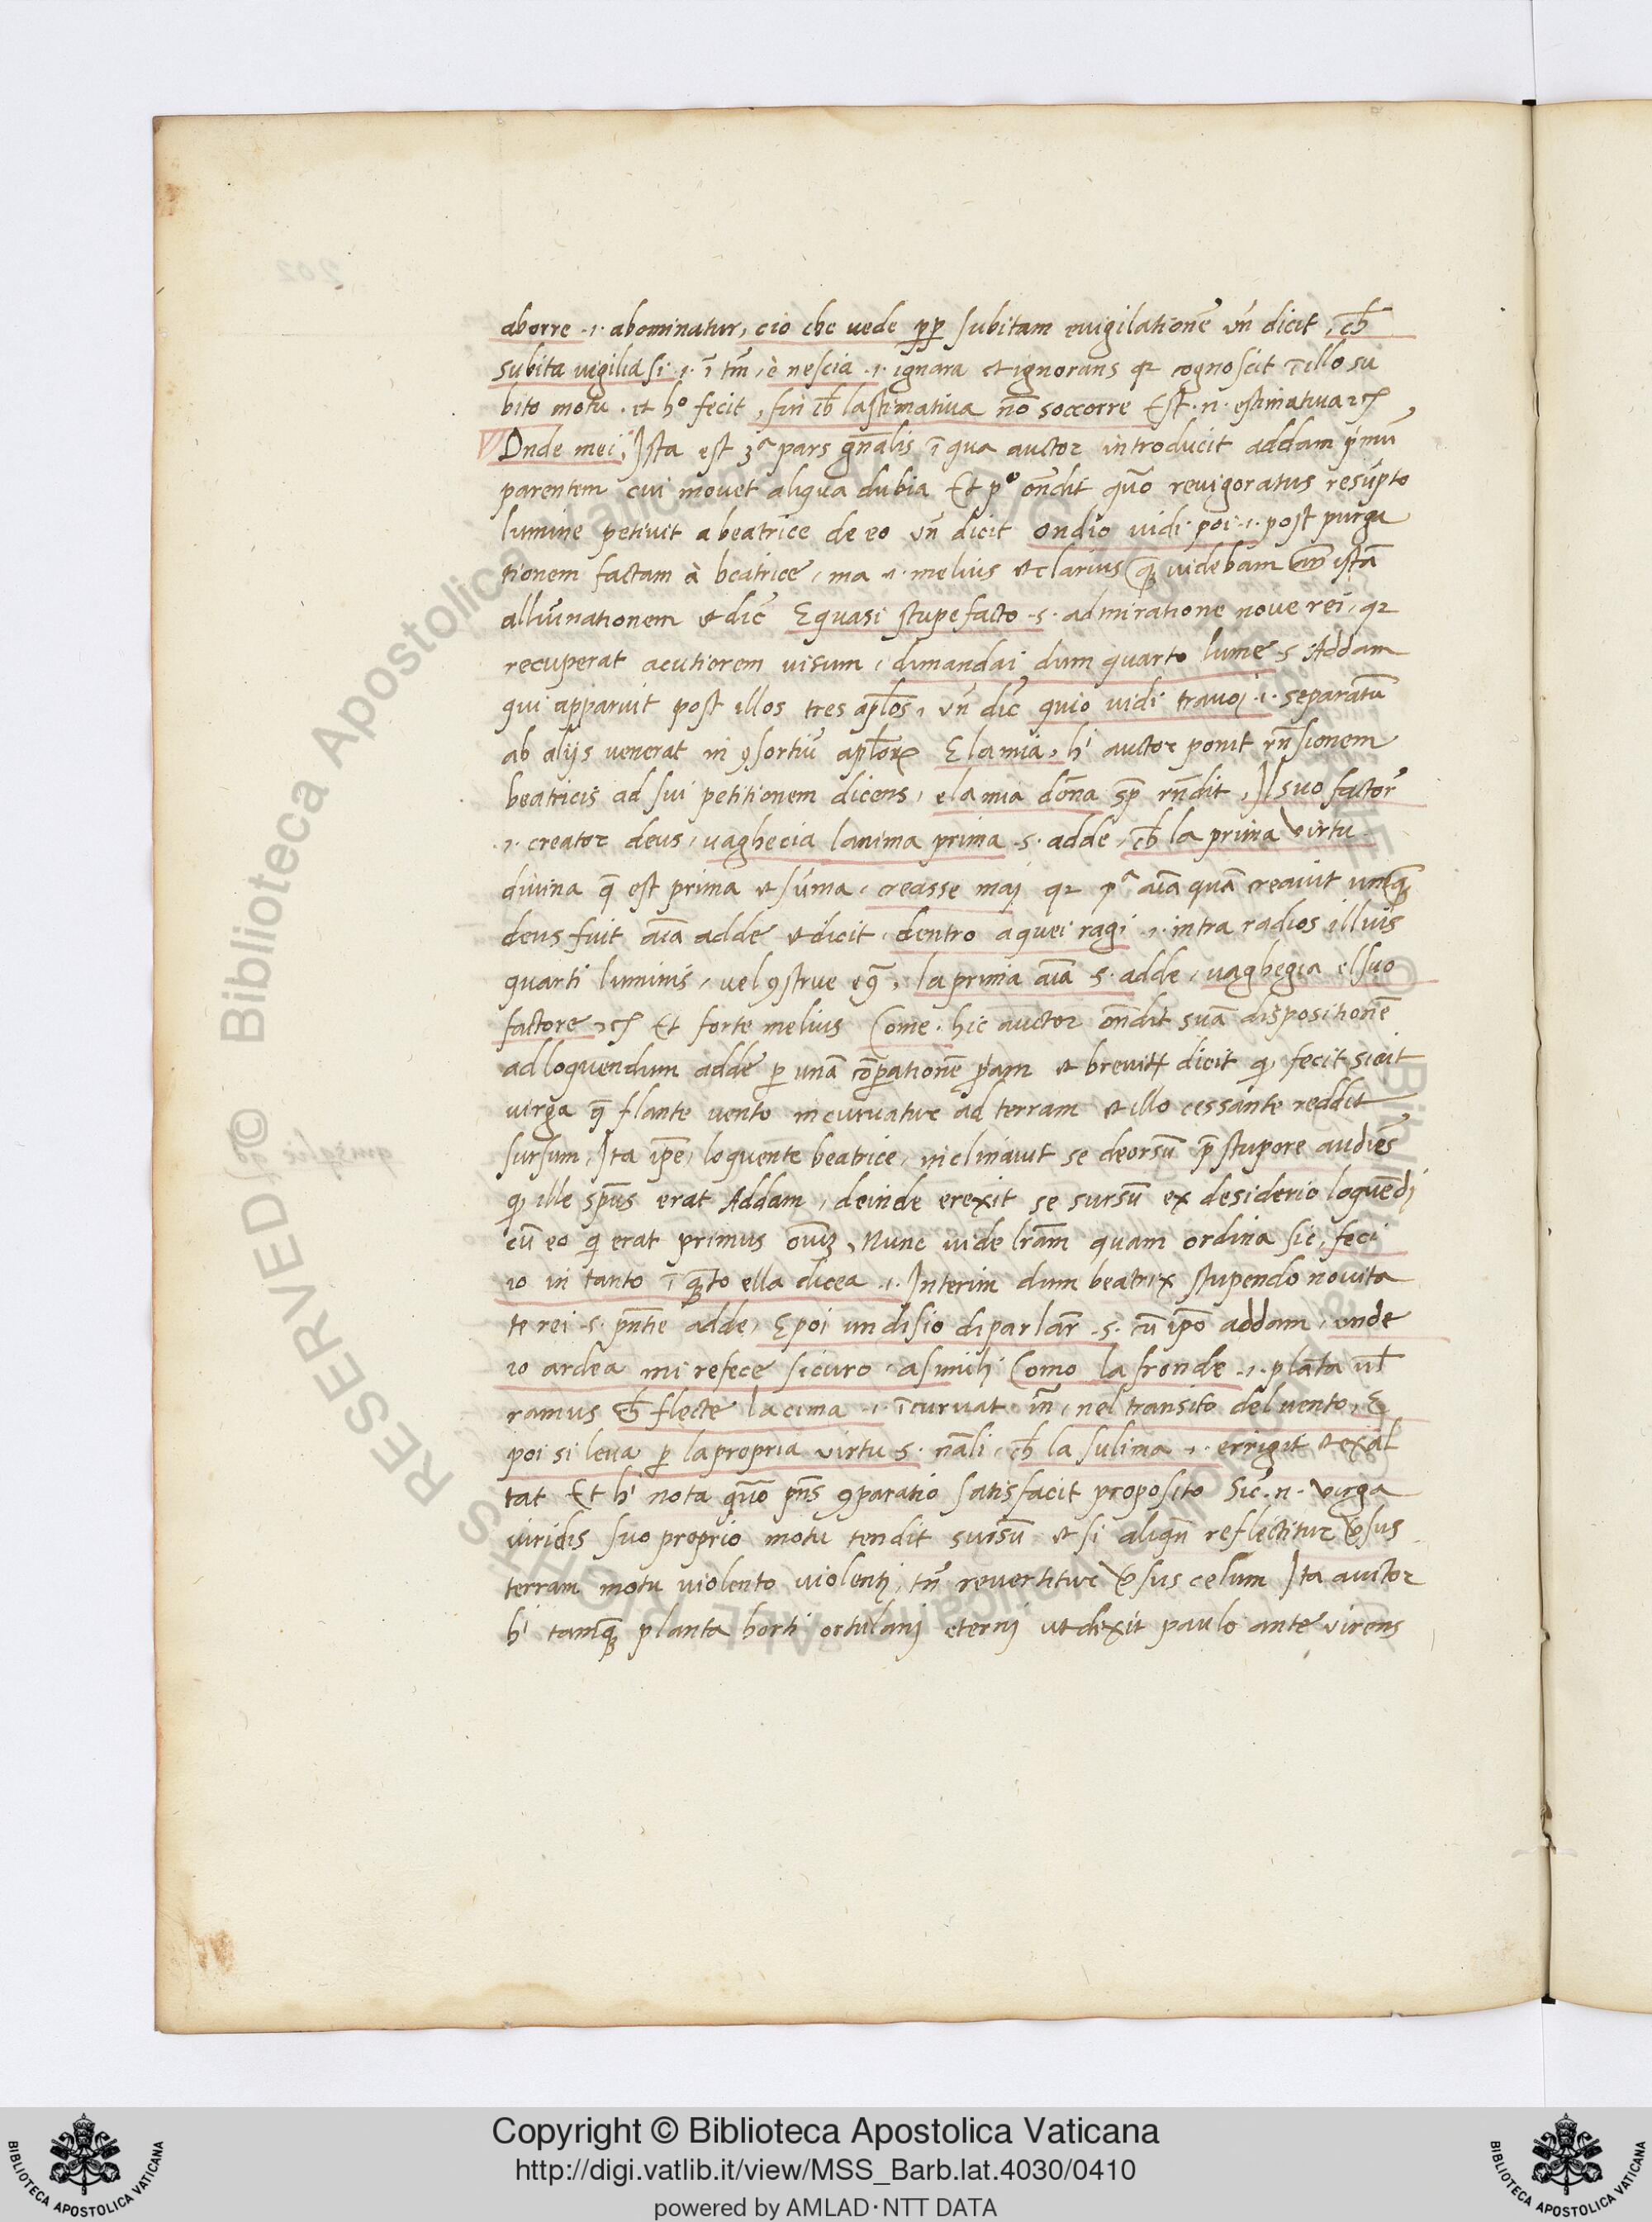 aborre .i. abominatur, cio che uede pp subitam euigilationẽ vñ dicit, ch̃
subita uigilia si .i. ĩ tm̃, è nescia .i. ignara et ignorans qr cognoscit ĩ illo su
bito motu. et hº fecit, fin ch̃ lastimatiua nõ soccorre Est .n. estimatiua rc̃
Onde mei, Ista est 3ª pars gñalis ĩ qua auctor introducit addam p̃mũ
parentem cui mouet aliqua dubia Et pº oñdit quõ reuigoratus resũpto
lumine petiuit a beatrice de eo vñ dicit ondio uidi poi .i. post purga
tionem factam à beatrice, ma et. melius et clarius q̃ uidebam an̄ istã
alluĩnationem et dic̃ E quasi stupefacto .s. admiratione noue rei, qr
recuperat acutiorem uisum, dimandai dum quarto lume .s. Addam
qui apparuit post illos tres aplõs, vñ dic̃ quio uidi trauoi .i. separatũ
ab alijs uenerat in 9sortiũ aplõrꝝ E la mia, hi auctor ponit rñsionem
beatricis ad sui petitionem dicens, e la mia dõna sp̃ rñdit, Il suo factor̃
.i. creator deus, uaghecia lanima prima .s. adde, ch̃ la prima virtu
diuina q̃ est prima et sũma, creasse maj qr pª aĩa quã creauit unq̃
deus fuit aĩa adde et dicit, dentro a quei ragi .i. intra radios illuis
quarti luminis, uel 9strue eq̃, la prima aĩa .s. adde, uaghegia el suo
factore rc̃ Et forte melius Come. hic auctor oñdit suã dispositionẽ
ad loquendum adde p unã cõparationẽ p̃am et breuitr̃ dicit q, fecit sicut
uirga q̃ flante uento incuruatur ad terram et illo cessante reddit
sursum, Ita ipẽ, loquente beatrice, inclinauit se deorsũ p̃ stupore audiẽs
q ille sp̃us erat Addam, deinde erexit se sursũ ex desiderio loquẽdi
cũ eo q erat primus oĩuz, Nunc uide lr̃am quam ordina sic, feci
io in tanto ĩ q̃to ella dicea .i. Interim dum beatrix stupendo nouita
te rei .s. pñtie adde, E poi un disio di parlar̃ .s. cũ ipõ addam, onde
io ardea mi refece sicuro. asimili Como la fronde .i. plãta ul̃
ramus ch̃ flecte la cima .i. ĩcuruat ĩñ, nel transito del uento, E
poi si leua p la propria uirtu .s. nãli, ch̃ la sulima .i. errigit et exal
tat Et hi nota quõ pñs 9paratio satisfacit proposito Sic .n. uirga
uiridis suo proprio motu tendit sursũ et si aliqñ reflectitur ũsus
terram motu uiolento uiolenti, tñ reuertitur ũsus celum Ita auctor
hi tamq̃ planta horti ortulani eterni ut dixit paulo ante uirens
Copyright © Biblioteca Apostolica Vaticana
http://digi.vatlib.it/view/MSS_Barb.lat.4030/0410
powered by AMLAD·NTT DATA